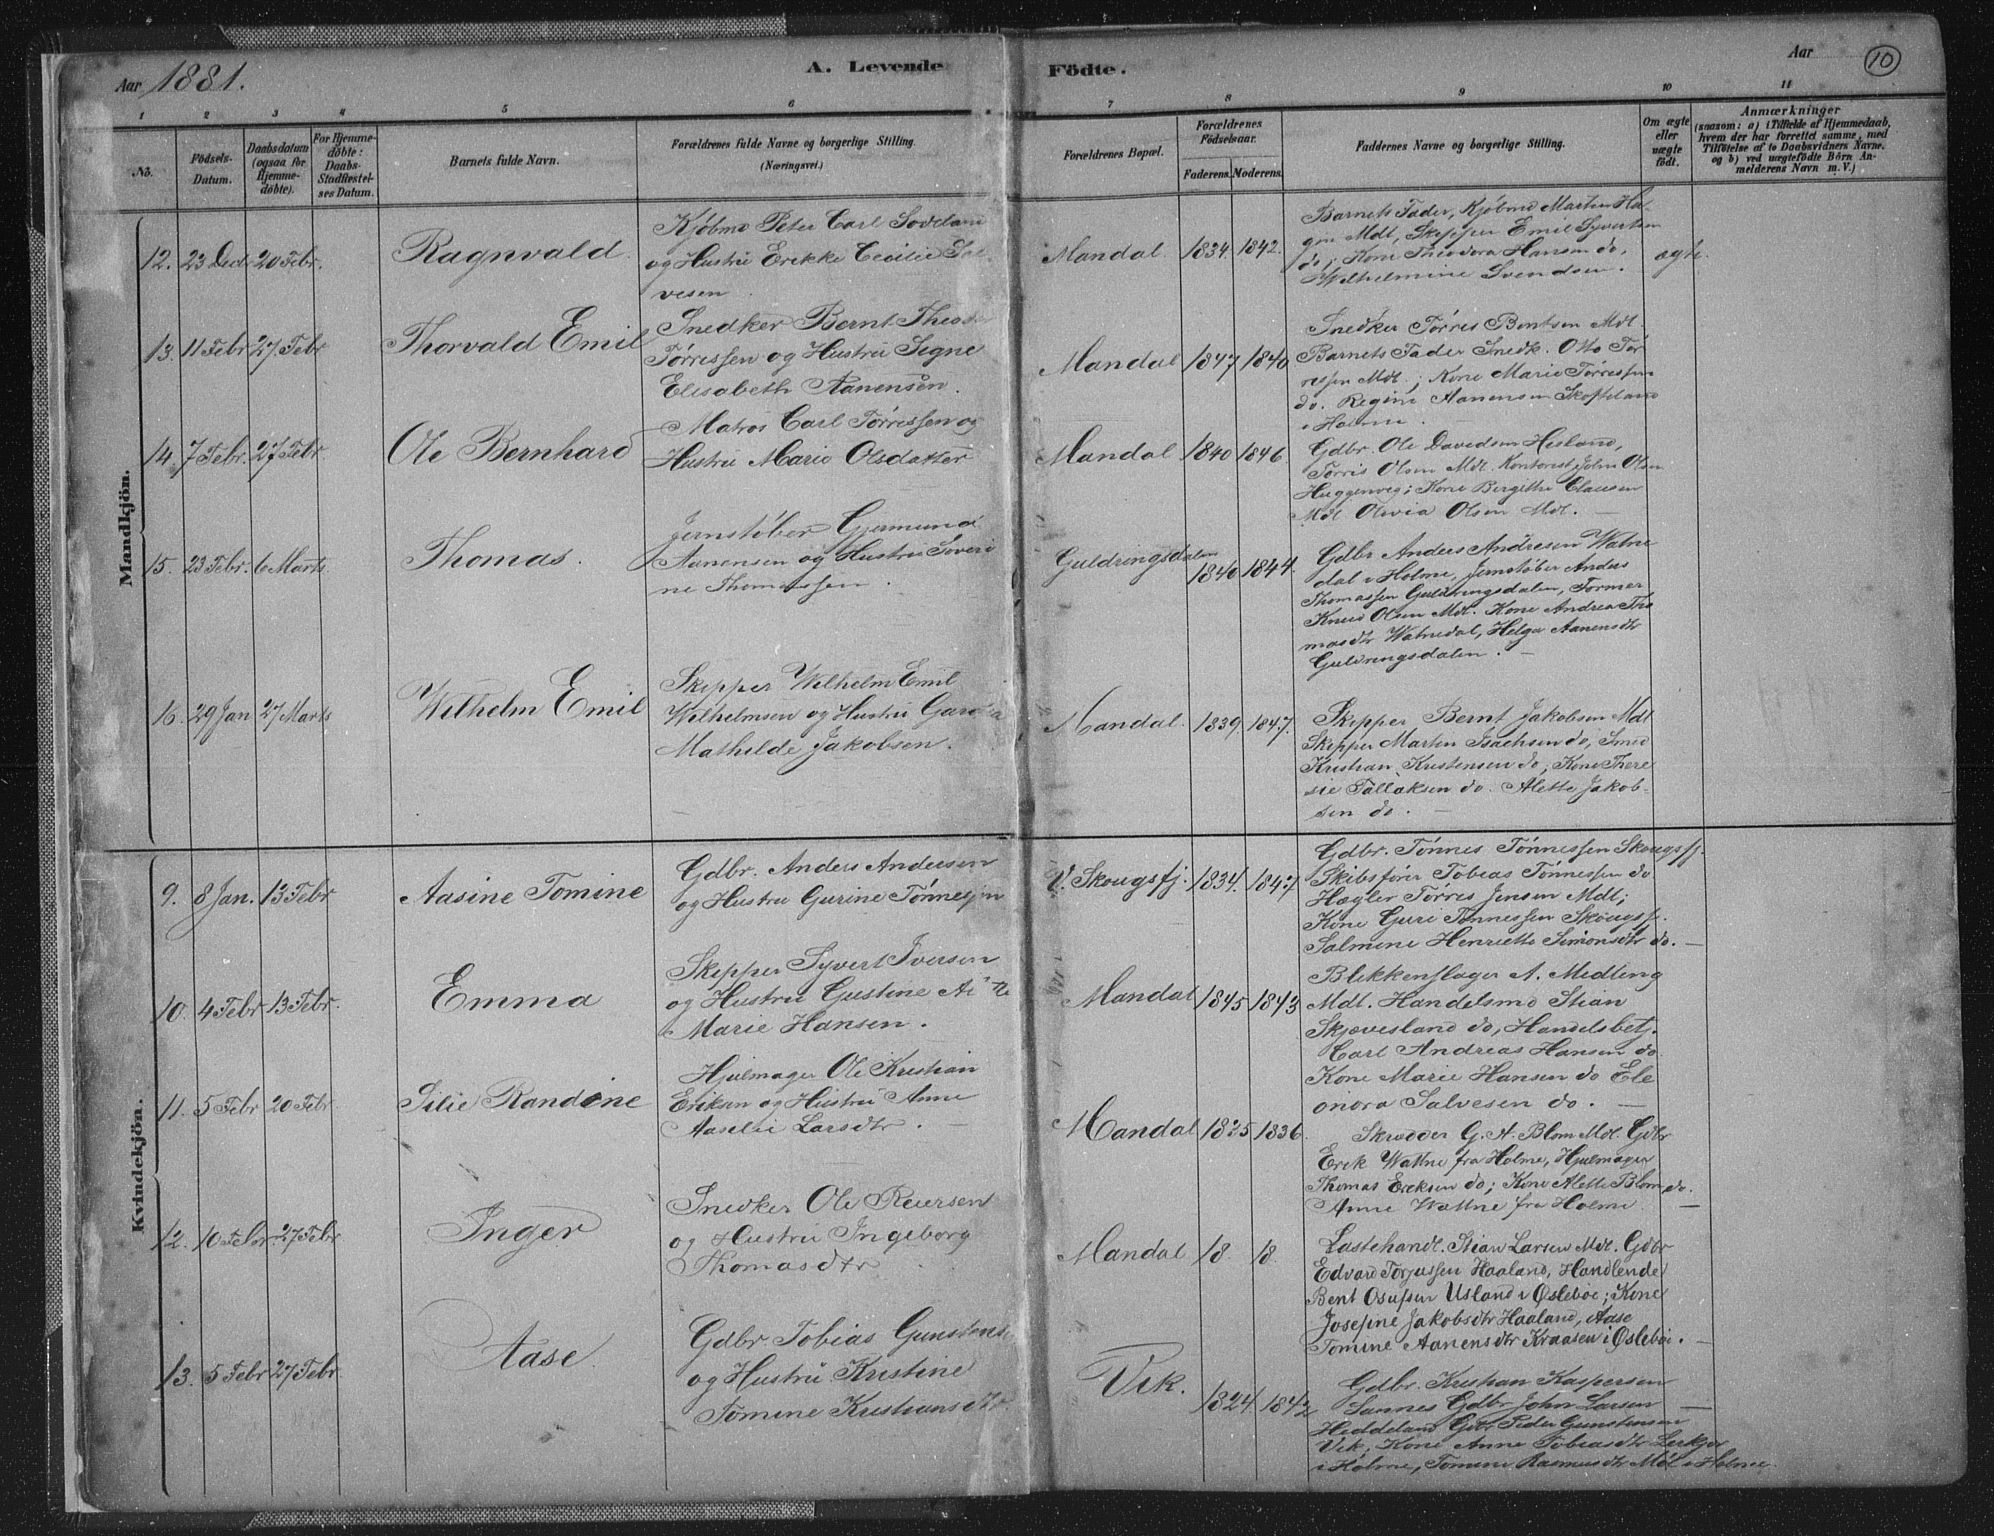 Aar 1881.
A. Levende Födte.
Aar
10
1 2 3 4 5 6 7 8 9 10 11
No.
Födsels-Datum.
Daabsdatum (ogsaa for Hjemme-döbte).
For Hjemme-döbte: Daabs-Stadfæstel-ses Datum.
Barnets fulde Navn.
Forældrenes fulde Navne og borgerlige Stilling.
(Næringsvei.)
Forældrenes Bopæl.
Forældrenes Födselsaar.
Faderens. Moderens.
Faddernes Navne og borgerlige Stilling.
Om ægte eller uægte födt.
Anmærkninger
(saasom: a) i Tilfælde af Hjemmedaab, hvem der har forrettet samme, med Tilföielse af to Daabsvidners Navne, og b) ved uægtefödte Börn Anmelderens Navn m. V.)
Mandkjön.
12. 23 Dec 20 Febr. Ragnvald
Kjøbmd Peter Carl
og Hustru Erikke Cecilie Sal
vesen
Mandal. 1834. 1842.
Barnets Fader, Kjøbmd Marten Ha
gen Mdl, Skipper Emil Syvertsen
do; Kone Theodora Hansen do,
Wilhelmine Svendsen.
ægte.
13. 11 Febr 27 Febr Thorvald Emil
Snedker Bernt Theodor
Tørressen og Hustru Signe
Elisabeth Aanensen.
Mandal 1847 1840
Snedker Tørres Bentsen Mdl.
Barnets Fader Snedk. Otto Tør
ressen Mdl.; Kone Marie Tørressen
do. Regine Aanensen Skofteland
i Holme.
14. 7 Febr. 27 Febr. Ole Bernhard
Matros Carl Tørressen og
Hustru Marie Olsdatter
Mandal 1840 1846.
Gdbr. Ole Davidsen Husland,
Tørris Olsen Mdl. Kontorist John Olsen
Kone Birgithe Clausen
Mdl Olevia Olsen Mdl. —
15. 23 Febr. 6 Marts Thomas.
Jernstøber Gjermund
Aanensen og Hustru Soveri
ne Thomassen.
Guldringsdalen 1840 1844.
Gdbr Anders Andresen Watne
dal i Holme, Jernstøber Anders
Thomassen Guldringsdalen, Former
Knud Olsen Mdl. Kone Andrea Tho
masdtr Watnedal, Helga Aanensdtr
Guldringsdalen. —
16. 29 Jan 27 Marts Wilhelm Emil
Skipper Wilhelm Emil
Wilhelmsen og Hustru
Mathilde Jakobsen.
Mandal. 1839. 1847.
Skipper Bernt Jakobsen Mdl
Skipper Marten Isachsen do, Smed
Kristian Kristensen do; Kone There
sie Tallaksen do. Alette Jakob-
sen do. —
Kvindekjön.
9. 8 Jan. 13 Febr Aasine Tomine
Gdbr. Anders Andersen
og Hustru Gurine Tønnessen
V. Skougsfj. 1834. 1847
Gdbr. Tønnes Tønnessen Skougsfj.
Skibsfører Tobias Tønnessen do
Hægler Tørres Jensen Mdl;
Kone Guri Tønnessen Skougsf.
Salmine Henriette Simonsdtr do. —
10. 4 Febr 13 Febr. Emma
Skipper Syvert Iversen
og Hustru Gustine
Marie Hansen.
Mandal 1845 1843
Blikkenslager A. Medling
Mdl. Handelsmd Stian
Skjævesland do, Handelsbetj.
Carl Andreas Hansen do
Kone Marie Hansen do Ele
onora Salvesen do. —
11. 5 Febr 20 Febr. Silie Randine
Hjulmager Ole Kristian
Eriksen og Hustru Anne
Aaselie Larsdtr. —
Mandal 1825 1836.
Skrædder G. A. Blom Mdl. Gdbr
Erik Wattne fra Holme, Hjulmager
Thomas Eriksen do; Kone Alette Blom do.
Anne Wattne fra Holme. —
12. 10 Febr. 27 Febr Inger
Snedker Ole Reiersen
og Hustru Ingeborg
Thomasdtr
Mandal 18. 18.
Lastehandl. Stian Larsen Mdl. Gdbr
Edvard Torjussen Haaland, Handlende
Bent Osufsen Usland i Øslebøe; Kone
Josefine Jakobsdtr Haaland, Aase
Tomine Aanensdtr Kraasen i Øslebø. —
13. 5 Febr 27 Febr. Aase.
Gdbr Tobias Gunstens
og Hustru Kristine
Tomine Kristiansdtr.
Vik. 1824 1842
Gdbr. Kristian Kaspersen
Sannes Gdbr John Larsen —
Heddeland Gdbr Peder Gunstensen
Vik, Kone Anne Tobiasdtr
i Holme, Tomine Rasmusdtr Møl i Holme